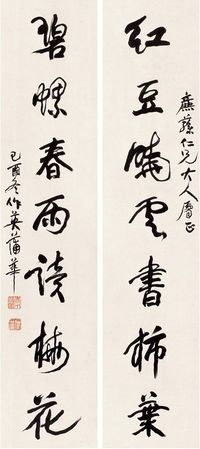 仁兄大人屬正
紅豆曉雲書柿葉
碧螺春雨讀梅花
己酉冬作英蒲華